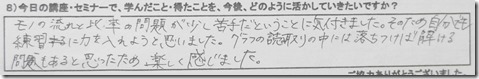 8）今回の授業・セミナーで、学んだこと・得たことを、今後、どのように活かしていきたいですか？
モノの流れと比率の問題が少し苦手だということに気付きました。そのため自分でも
練習するに力を入れようと思いました。グラフの読み取りの中には落ちつけば解ける
問題もあると思ったため、楽しく感じました。
ご協力ありがとうございました